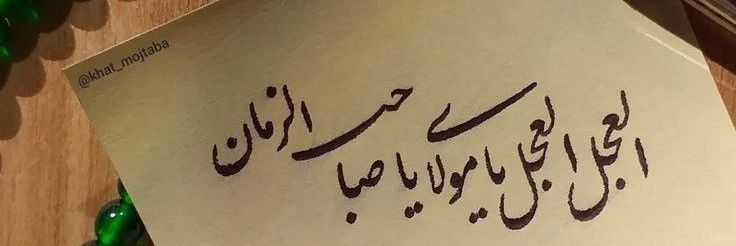 @khat_mojtaba
العجل العجل یا مولای یا صاحب الزمان